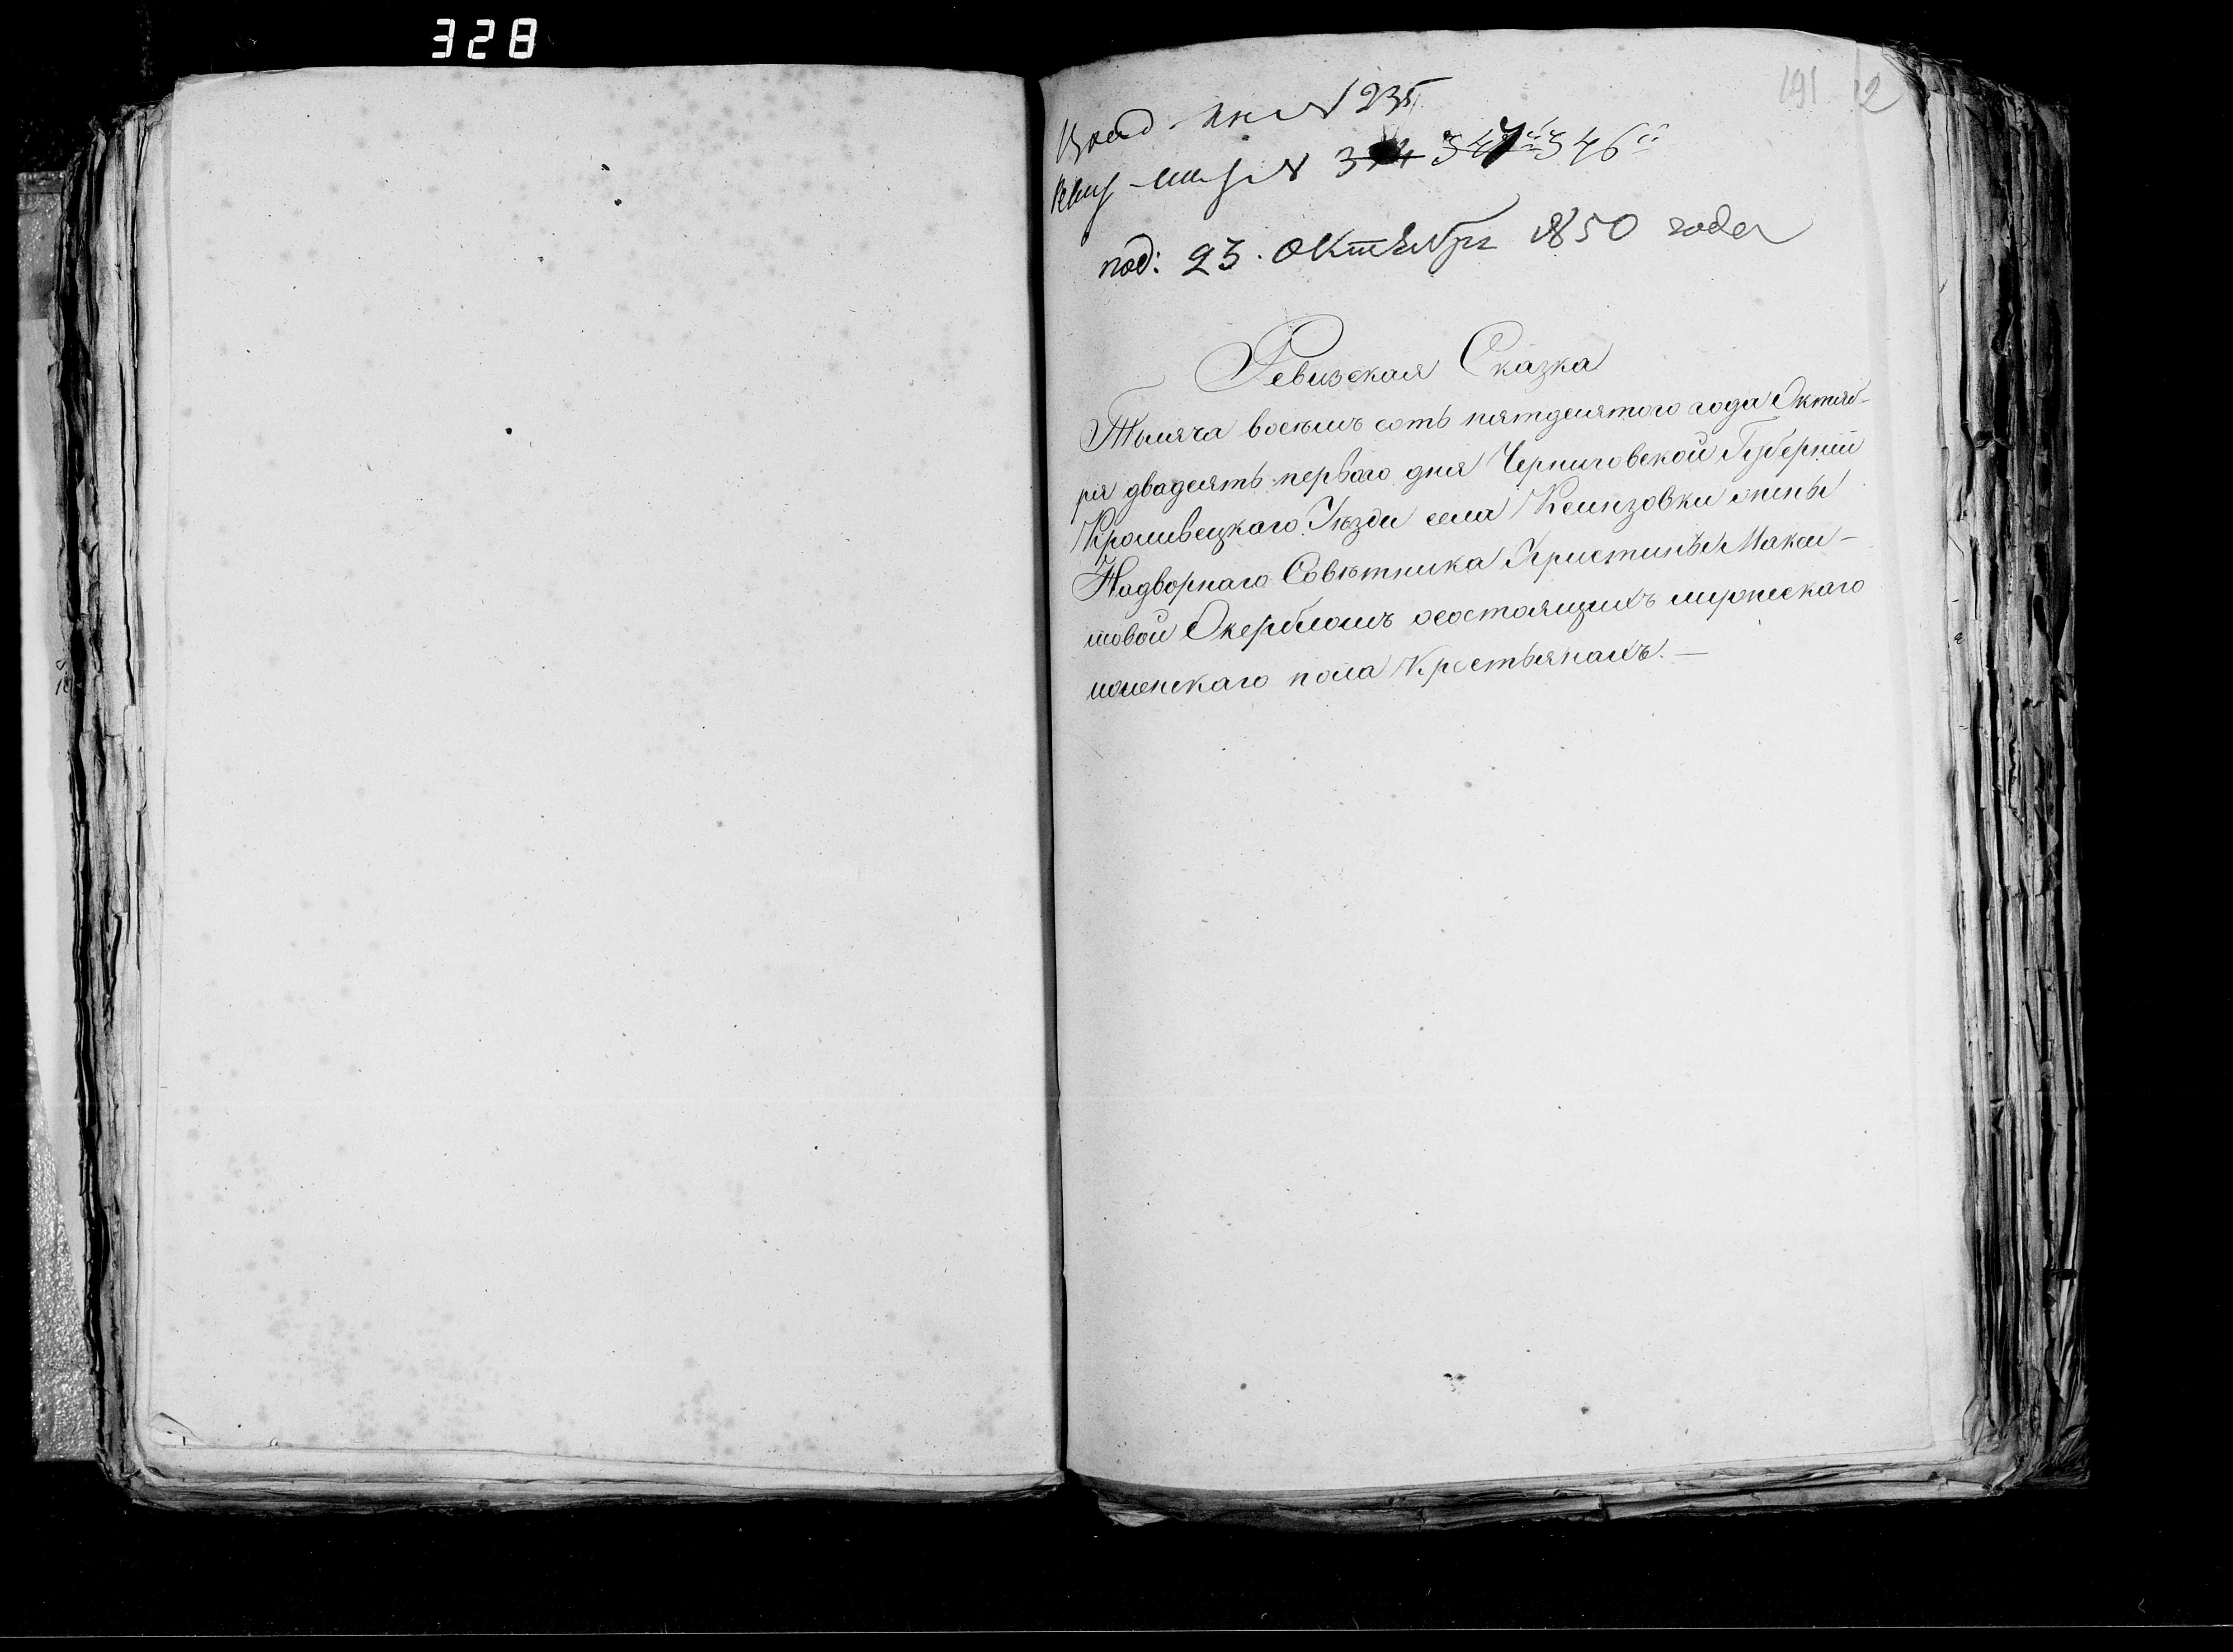 328
191 12
№ 235
№ 346
под: 23. Октября 1850 года
Ревизская Сказка
Тысяча восемь сотъ пятдесятого года Октяб-
ря двадесять первого дня Черниговской Губерніи
Кролевецкаго Уезда села Ксензовки жены
Надворнаго Советника Христины Макси-
мовой Окербломъ осостоящихъ мужескаго
женскаго пола Крестьянахъ. —